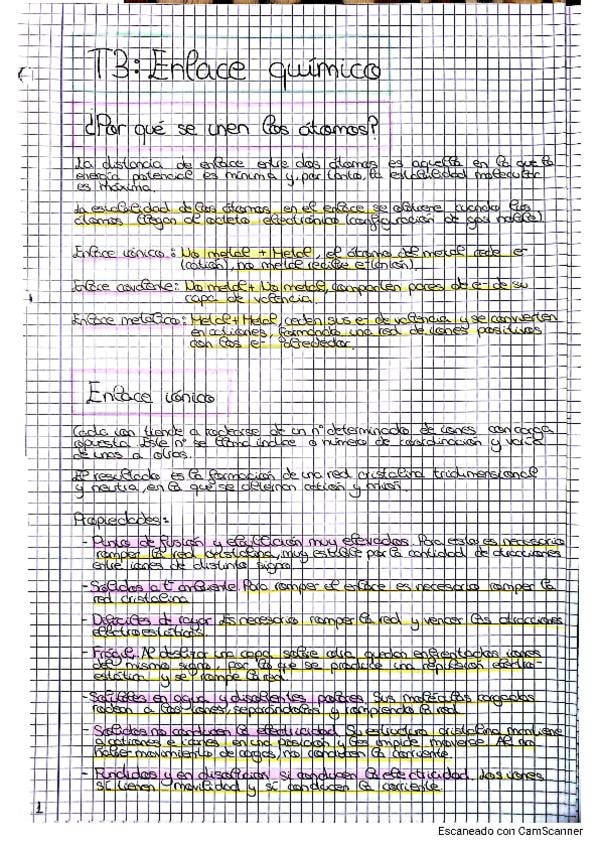 T3: Enlace químico
¿Por qué se unen los átomos?
La distancia de enlace entre dos átomos es aquella en la que la
energía potencial es mínima y, por tanto, la estabilidad molecular
es máxima.
La estabilidad de los átomos en el enlace se obtiene cuando los
átomos llegan al octeto electrónico (configuración de gas noble)
Enlace iónico: No metal + Metal, el átomo del metal cede e-
(catión), no metal recibe e- (anión).
Enlace covalente: No metal + No metal, comparten pares de e- de su
capa de valencia.
Enlace metálico: Metal + Metal, ceden sus e- de valencia y se convierten
en cationes, formando una red de iones positivos
con los e- alrededor.
Enlace iónico
Cada ion tiende a rodearse de un nº determinado de iones con carga
opuesta. Este nº se llama índice o número de coordinación y varía
de unos a otros.
El resultado es la formación de una red cristalina tridimensional
y neutra, en la que se alternan catión y anión.
Propiedades:
- Puntos de fusión y ebullición muy elevados. Para estos es necesario
romper la red cristalina, muy estable por la cantidad de atracciones
entre iones de distinto signo.
- Sólidos a tº ambiente. Para romper el enlace es necesario romper la
red cristalina.
- Difíciles de rayar. Es necesario romper la red y vencer las atracciones
electroestáticas.
- Frágil. Al deslizar una capa sobre otra, quedan enfrentados iones
del mismo signo, por lo que se produce una repulsión electro-
estática y se rompe la red.
- Solubles en agua y disolventes polares. Sus moléculas cargadas
rodean a los iones, separándolos y rompiendo la red.
- Sólidos no conducen la electricidad. Su estructura cristalina mantiene
a cationes e iones en una posición y les impide moverse. Al no
haber movimiento de cargas, no conducen la corriente.
- Fundidos y en disolución sí conducen la electricidad. Los iones
sí tienen movilidad y sí conducen la corriente.
1
Escaneado con CamScanner